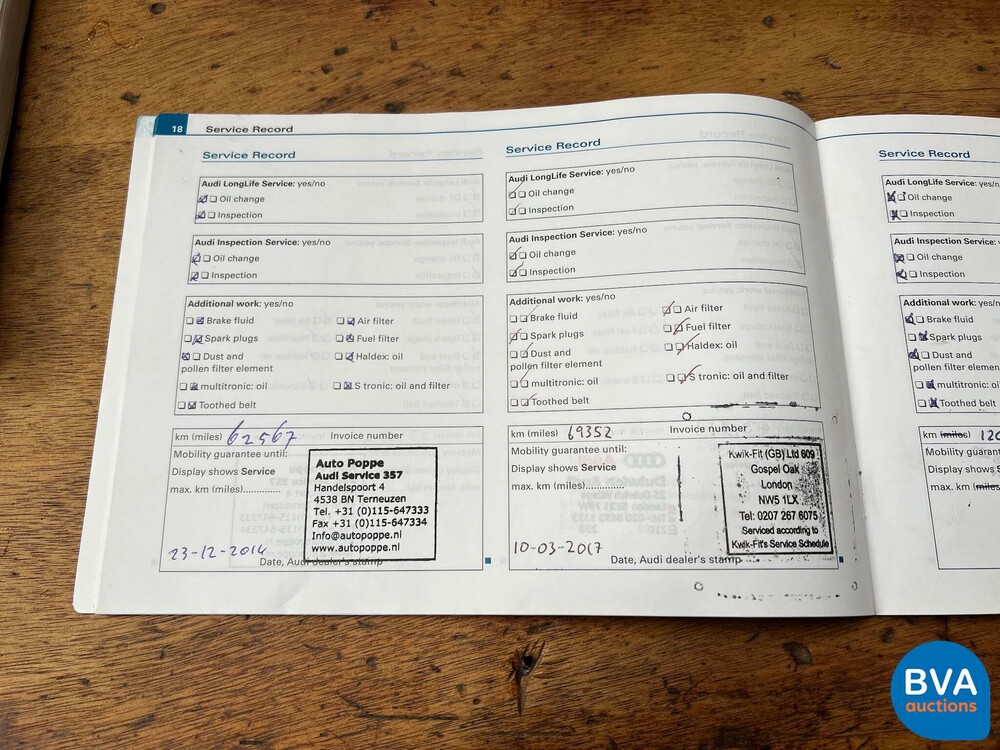 18 Service Record
Service Record
Audi LongLife Service: yes/no
Oil change
Inspection
Audi Inspection Service: yes/no
Oil change
Inspection
Additional work: yes/no
Brake fluid Air filter
Spark plugs Fuel filter
Dust and Haldex: oil
pollen filter element
multitronic: oil S tronic: oil and filter
Toothed belt
km (miles) 62567 Invoice number
Mobility guarantee until:
Display shows Service
max. km (miles).............
Auto Poppe
Audi Service 357
Handelspoort 4
4538 BN Terneuzen
Tel. +31 (0)115-647333
Fax +31 (0)115-647334
Info@autopoppe.nl
www.autopoppe.nl
23-12-2014
Date, Audi dealer's stamp
Service Record
Audi LongLife Service: yes/no
Oil change
Inspection
Audi Inspection Service: yes/no
Oil change
Inspection
Additional work: yes/no
Brake fluid Air filter
Spark plugs Fuel filter
Dust and Haldex: oil
pollen filter element
multitronic: oil S tronic: oil and filter
Toothed belt
km (miles) 69352 Invoice number
Mobility guarantee until:
Display shows Service
max. km (miles).............
Kwik-Fit (GB) Ltd 609
Gospel Oak
London
NW5 1LX
Tel: 0207 267 6075
Serviced according to
Kwik-Fit's Service Schedule
10-03-2017
Date, Audi dealer's stamp
Service Record
Audi LongLife Service: yes/
Oil change
Inspection
Audi Inspection Service: y
Oil change
Inspection
Additional work: yes/no
Brake fluid
Spark plugs
Dust and
pollen filter element
multitronic: oil
Toothed belt
km (miles) 120
Mobility guarantee
Display shows S
max. km (miles
BVA
auctions